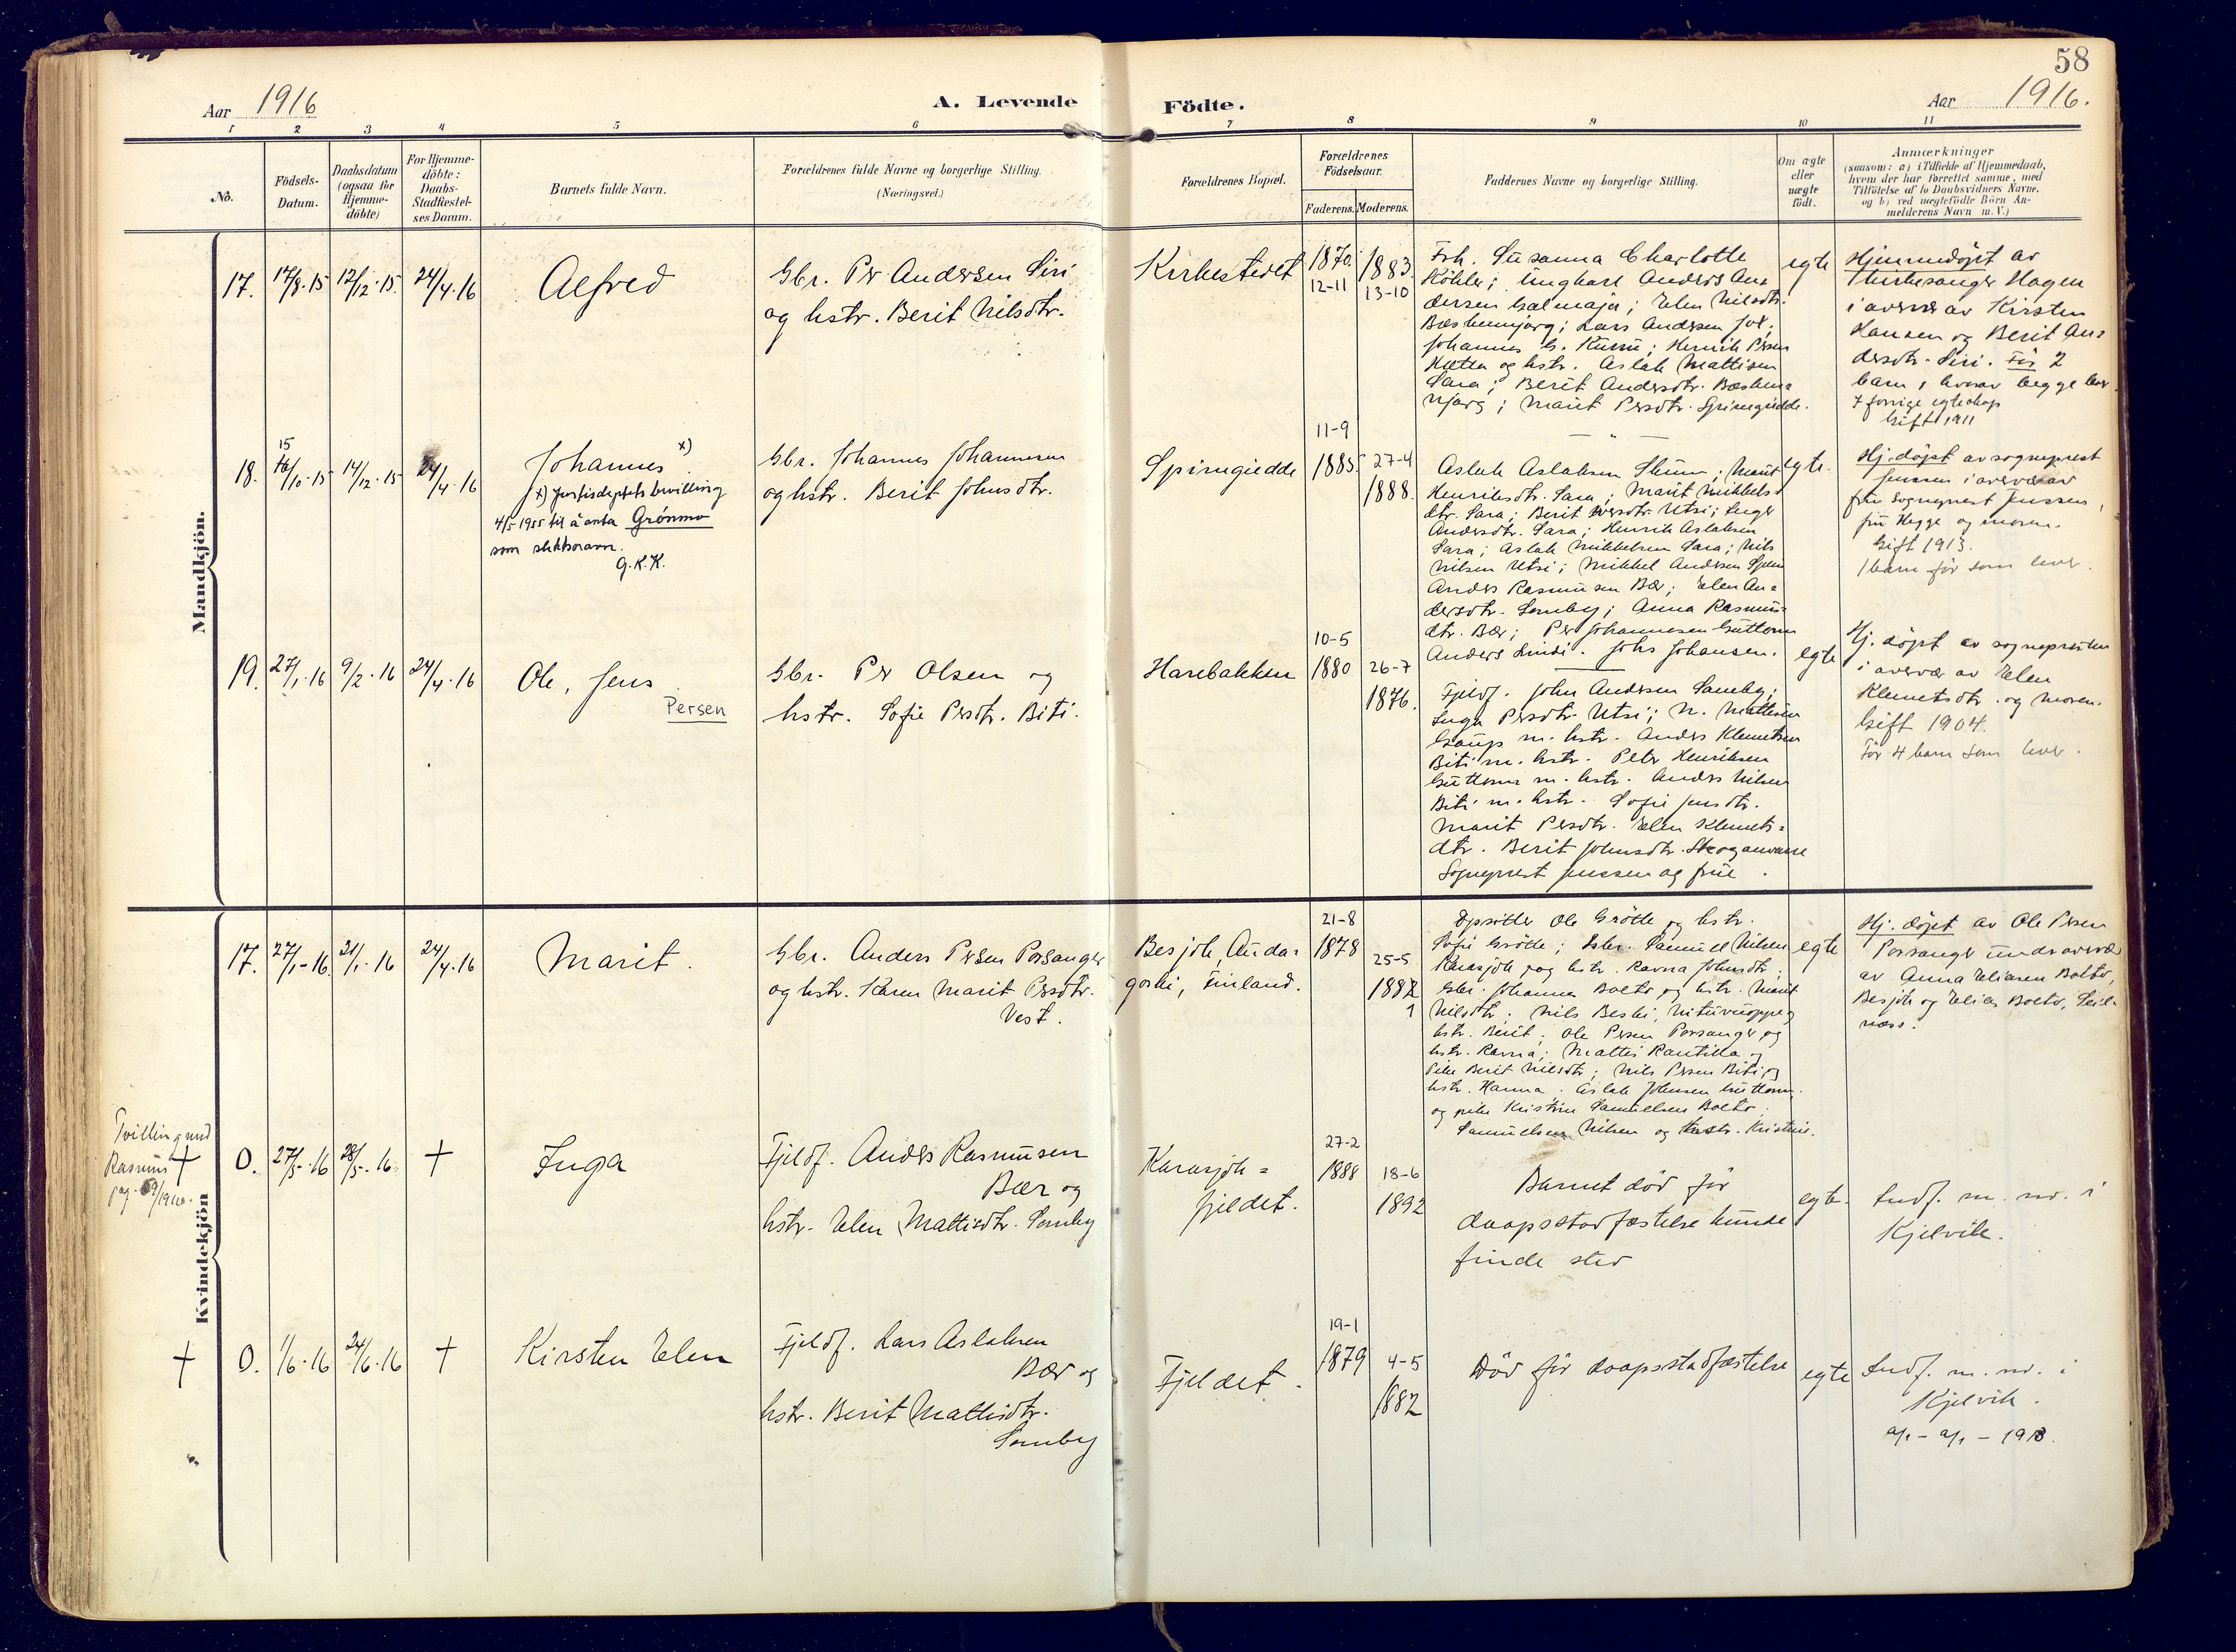 58
Aar 1916
A. Levende
Födte.
Aar 1916.
1 2 3 4 5 6 7 8 9 10 11
No.
Födsels-
Datum.
Daabsdatum
(ogsaa for
Hjemme-
döbte)
For Hjemme-
döbte:
Daabs-
Stadfæstel-
ses Datum.
Barnets fulde Navn.
Forældrenes fulde Navne og borgerlige Stilling.
(Næringsvei.)
Forældrenes Bopæl.
Forældrenes
Födselsaar.
Faderens. Moderens.
Faddernes Navne og borgerlige Stilling.
Om ægte
eller
uægte
födt.
Anmærkninger
(saasom: a) i Tilfælde af Hjemmedaab,
hvem der har forrettet samme, med
Tilföielse af to Daabsvidners Navne,
og b) ved uægtefödte Börn An-
melderens Navn m. V.)
Mandkjön.
17. 17/8.15 12/12.15. 24/4.16
Alfred
Gbr. Per Andersen Siri
og hstr. Berit Nilsdtr.
Kirkestedet
1870. 12-11
1883. 13-10
Frk. Susanna Charlotte
Köhler; ungkarl Anders An-
dersen Halmaja; Elen Nilsdtr.
Lars Andersen
Johannes Henrik Persen
Hætta og hstr. Aslak Mattisen
Sara; Berit Andersdtr.
njarg; Marit Persdtr. Spirnegiedde.
egte
Hjemmedøpt av
Kirkesanger Hagen
i overvær av Kirsten
Hansen og Berit An-
dersdtr. Siri. Før 2
barn, hvorav begge lever.
forrige egteskap
Gift 1911
18. 15 16/10-15 14/12-15 24/4.16
Johannes x)
x) Justisdeptets bevilling
4/5 1955 til å anta Grönmo
som slektsnavn.
G.K.K.
Gbr. Johannes Johannesen
og hstr. Berit Johnsdtr.
Spirnegiedde
11-9
1885.
27-4
1888.
Aslak Aslaksen Skum; Marit
Henriksdtr. Sara; Marit Mikkels-
dtr. Sara; Berit Iversdtr. Utsi; Inger
Andersdtr. Sara; Henrik Aslaksen
Sara; Aslak Mikkelsen Sara; Nils
Nilsen Utsi; Mikkel Andersen
Anders Rasmusen Bær; Elen An-
dersdtr. Somby; Anna Rasmus-
dtr. Bær; Per Johannesen Guttorm
Anders Johs Johansen.
egte.
Hj. døpt av sogneprest
Jenssen i overvær av
fru sogneprest Jenssen,
fru Hegge og moren.
Gift 1913.
1 barn før som lever.
19. 27/1.16 9/2.16 24/4.16
Ole, Jens
Persen
Gbr. Per Olsen og
hstr. Sofie Persdtr. Biti.
Harebakken
10-5
1880
26-7
1876.
Fjeldf. John Andersen Somby;
Inga Persdtr. Utsi; N. Mattisen
Gaup m. hstr. Anders Klemetsen
Biti m. hstr. Peter Henriksen
Guttorm m. hstr. Anders Nilsen
Biti m. hstr. Sofie Jensdtr.
Marit Persdtr. Elen Klemets-
dtr. Berit Johnsdtr. Skoganvarre
Sogneprest Jenssen og frue.
egte
Hj. døpt av sognepresten
i overvær av Elen
Klemetsdtr. og moren.
Gift 1904.
Før 4 barn som lever.
Kvindekjön
17. 27/1-16 31/1.16 24/4.16
Marit.
Gbr. Anders Persen Porsanger
og hstr. Karen Marit Persdtr.
Vest.
Besjok, Audas-
goski, Finland.
21-8
1878
25-5
1882
1
Opsitter Ole Grötte og hstr.
Sofie Grötte; Gbr. Samuel Nilsen
Karasjok og hstr. Ravna Johnsdtr.
Gbr. Johannes Bolto og hstr. Marit
Nilsdtr. Nils Beski,
hstr. Berit; Ole Persen Porsanger og
hstr. Ravna; Mattis Rautilla og
Pike Berit Nilsdtr; Nils Persen Biti og
hstr. Hanna. Aslak Johnsen Guttorm
og pike Kristine Samuelsen Bolto.
Samuelsen Nilsen og hstr. Kristine.
egte
Hj. døpt av Ole Persen
Porsanger under overvær
av Anna Eliasen Bolto,
Besjok og Elias Bolto, Seil-
næss.
Tvilling med
Rasmus
pag. 59/1916.
† 0. 27/5.16 28/5.16 †
Inga
Fjeldf. Anders Rasmusen
Bær og
hstr. Elen Mattisdtr. Somby
Karasjok-
fjeldet.
27-2
1888
18-6
1892
Barnet død før
daapsstadfæstelse kunde
finde sted
egte.
Indf. m. nr. i
Kjelvik.
† 0. 1/6.16 24/6.16 †
Kirsten Elen
Fjeldf. Lars Aslaksen
Bær og
hstr. Berit Mattisdtr.
Somby
Fjeldet.
19-1
1879
4-5
1882
Død før daapsstadfæstelse
egte
Indf. m. nr. i
Kjelvik.